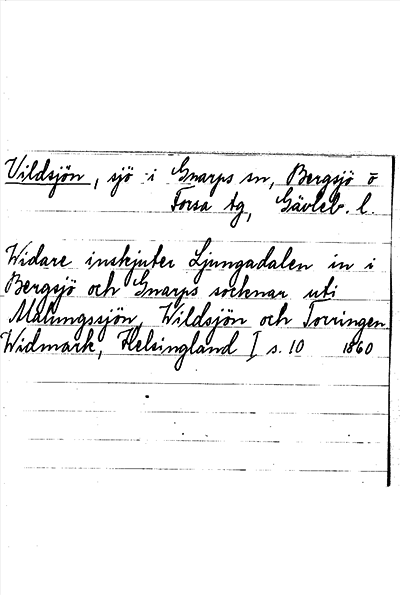 Vildsjön, sjö i Gnarps sn, Bergsjö o
Forsa tg, Gävleb. l.
Widare inskjuter Ljungadalen in i
Bergsjö och Gnarps socknar uti
Malungssjön, Wildsjön och Torringen
Widmark, Helsingland I s. 10 1860